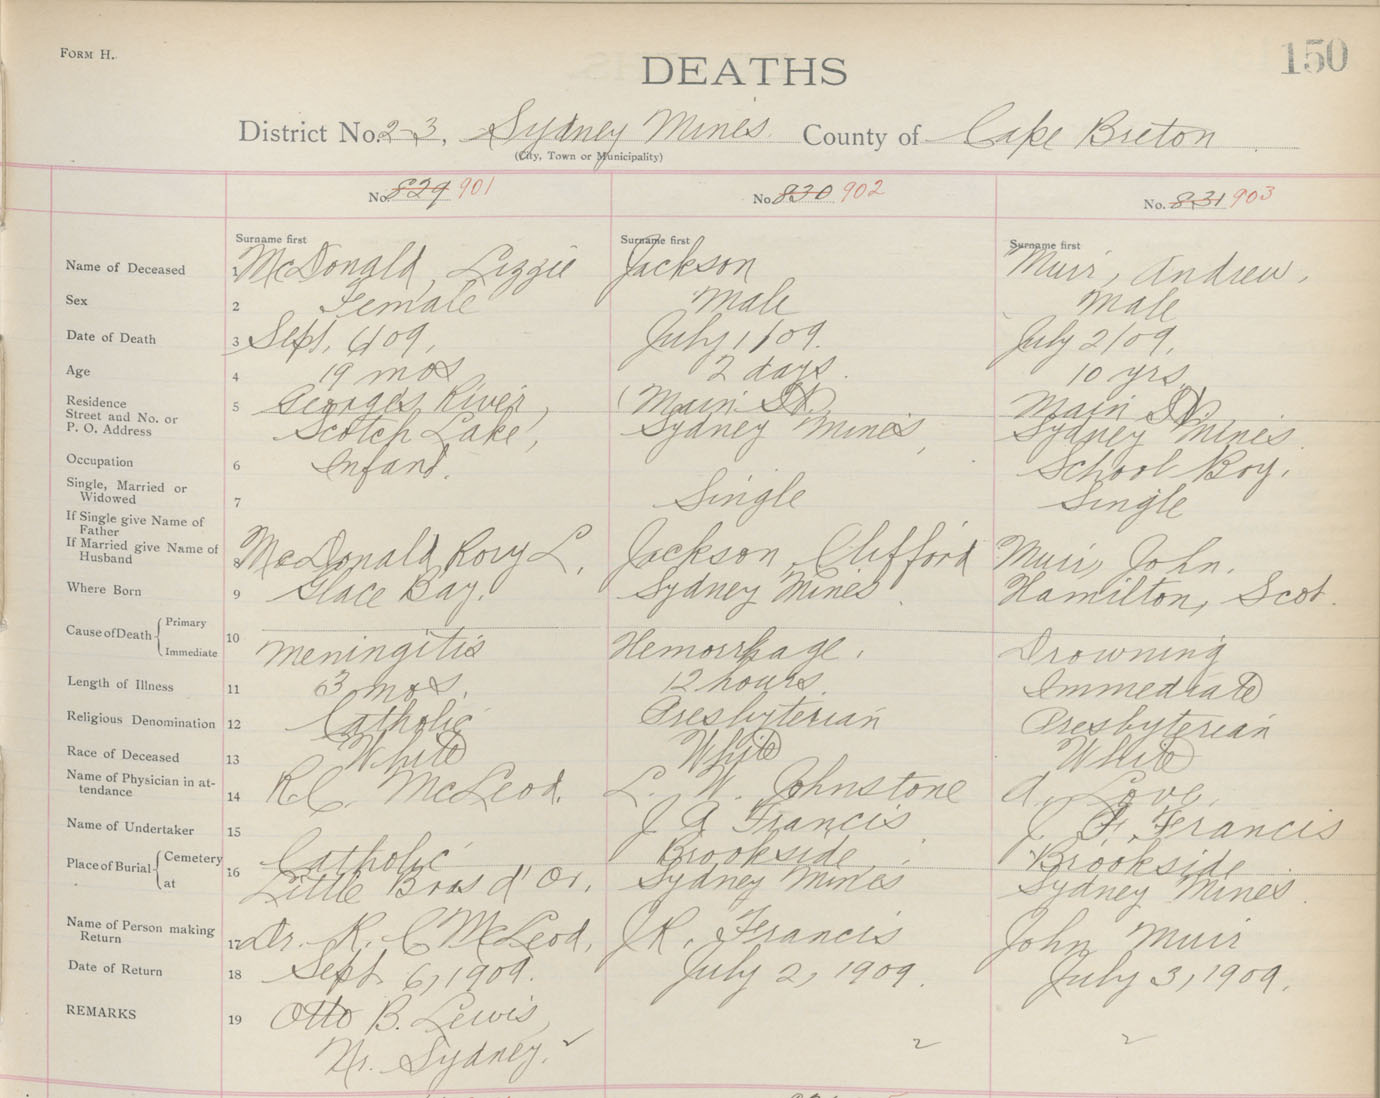 FORM H.
DEATHS
150
District No. 2-3, Sydney Mines. County of Cape Breton
(City, Town or Municipality)
No. 829 901
No. 830 902
No. 831 903
Surname first
Surname first
Surname first
Name of Deceased 1 McDonald, Lizzie
Jackson
Muir, Andrew,
Sex 2 Female
Male
Male
Date of Death 3 Sept. 6/09,
July 1/09.
July 2/09,
Age 4 19 mos
2 days.
10 yrs.
Residence
Street and No. or
P. O. Address
5 Georges River,
Scotch Lake,
Main St.
Sydney Mines,
Main St.
Sydney Mines.
Occupation 6 Infant.
School Boy.
Single, Married or
Widowed
7
Single
Single
If Single give Name of
Father
If Married give Name of
Husband
8 McDonald, Rory L.
Jackson, Clifford
Muir, John.
Where Born 9 Glace Bay.
Sydney Mines.
Hamilton, Scot.
Cause of Death Primary
Immediate
10 Meningitis
Hemorrhage.
Drowning
Length of Illness 11 3 mos.
12 hours.
Immediate
Religious Denomination 12 Catholic
Presbyterian
Presbyterian
Race of Deceased 13 White
White
White
Name of Physician in at-
tendance
14 R. C. McLeod.
L. W. Johnstone
A. Love.
Name of Undertaker 15
J A Francis
J. F. Francis
Place of Burial Cemetery
at
16 Catholic
Little Bras d'Or.
Brookside,
Sydney Mines
Brookside
Sydney Mines.
Name of Person making
Return
17 Dr. R. C McLeod.
J R. Francis
John Muir
Date of Return 18 Sept 6, 1909.
July 2, 1909.
July 3, 1909.
REMARKS 19 Otto B. Lewis,
Nr. Sydney.